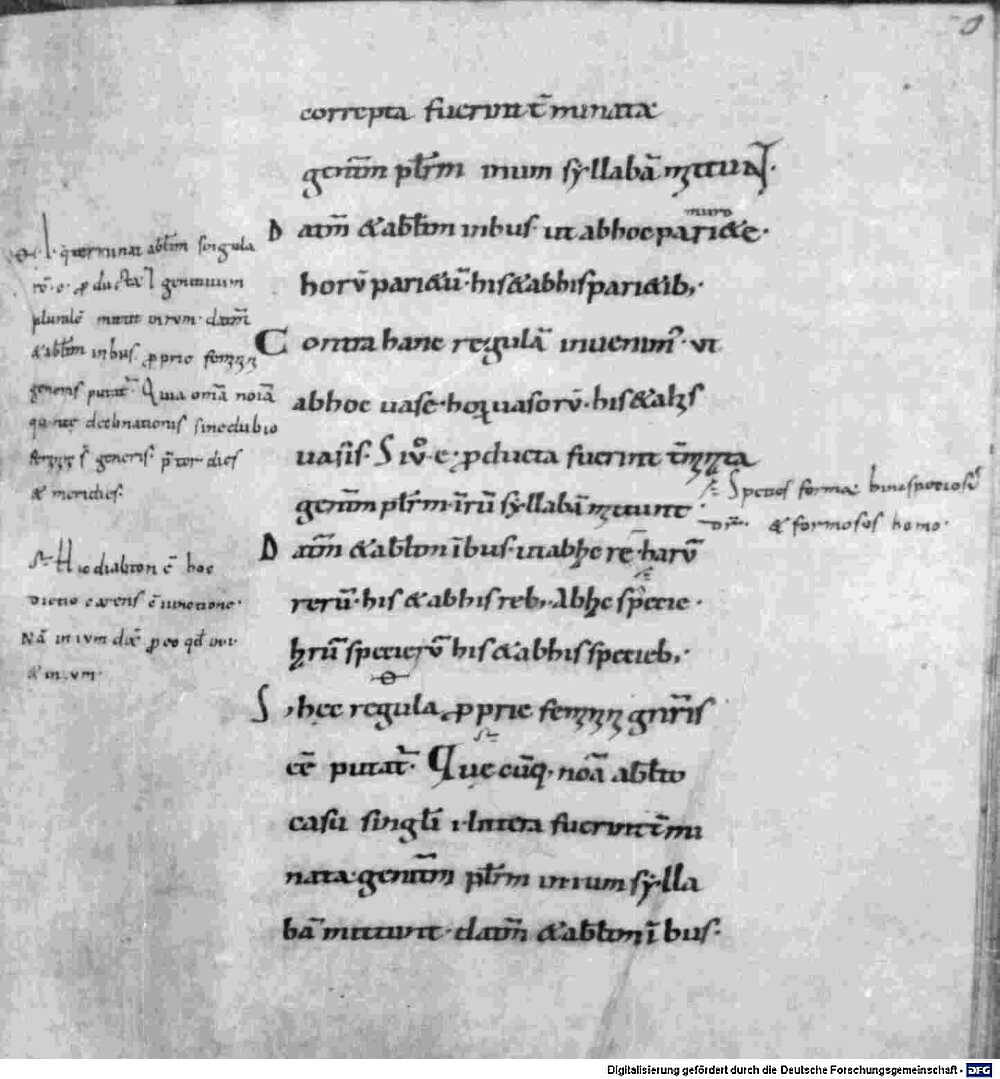 correpta fuerint t̄minata
genitm̄ plr̄m inum syllabā mittunt·
Datm̄ &abltm̄ inbus· ut abhoc pari&e·
muro
horū pari&ū· his&abhis pari&ib;·
Contra hanc regulā inuenim᷒· ut
abhoc uase· hoꝝ uasorū· his&ab his
uasis· Si ů ·e· ꝓducta fuerint t̄minata
genitm̄ plr̄m· ī rū syllabā mittunt·
Datm̄ &abltm̄ ībus· ut abhac re· harū
rerū· his &abhis reb; Abhac specie·
harū specierū his&abhis specieb;·
S; hęc regula ꝓprie feminini gn̄ris
eē putat᷑· Quęcūq; noīa ablto
casu singl̄i ·i· littera fuerint t̄mi
nata· genitm̄ plr̄m in ium sylla
bā mittunt· datm̄ &abltm̄ ī bus·
q̄ terminat abltm̄ singula
rē ·e· ꝓducta ł genitiuum
pluralē mittit in rum· datm̄
&abltm̄ in bus· ꝓprie feminini
generis putat᷑· Quia om̄a noīa
quintę declinationis sine dubio
feminini s̄ generis· p̄ter dies
& meridies·
Hic diabton ē hoc
dictio carens ē iunctione·
Nā in ium dix̄ ꝓ eo qd̄
& in um·
Species formae hinc speciosi
& formosos homo·